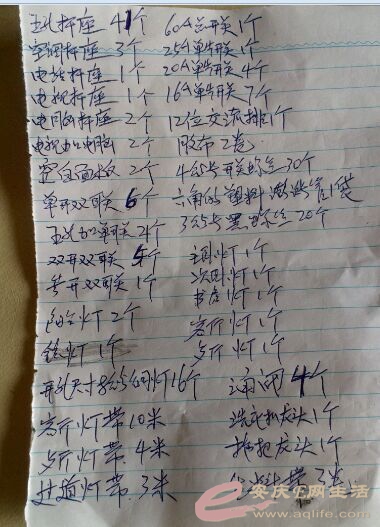 五孔插座 41个 60A总开关1个
空调插座 3个 25A单片开1个
电话插座 1个 20A单片开关4个
电视插座 1个 16A单片开关7个
电目的插座 2个 12位交流排1个
电视加电脑 2个 胶布2卷
空白面板 2个 4公分开关的丝30个
单开双联 6个 六角的塑料膨胀管1袋
五孔加单联 2个 3公分黑的丝20个
双开双联 4个 主卧灯1个
单开双联 1个 次卧灯1个
阳台灯 2个 书房灯 1个
客厅灯 1个
镜灯 1个 歺厅灯 1个
开孔尺寸8公分的灯16个 三通阀4个
客厅灯带10米 洗衣机龙头1个
歺厅灯带4米 拖把龙头1个
过道灯带3米 生料带3米
安庆E网生活
www.aqlife.com